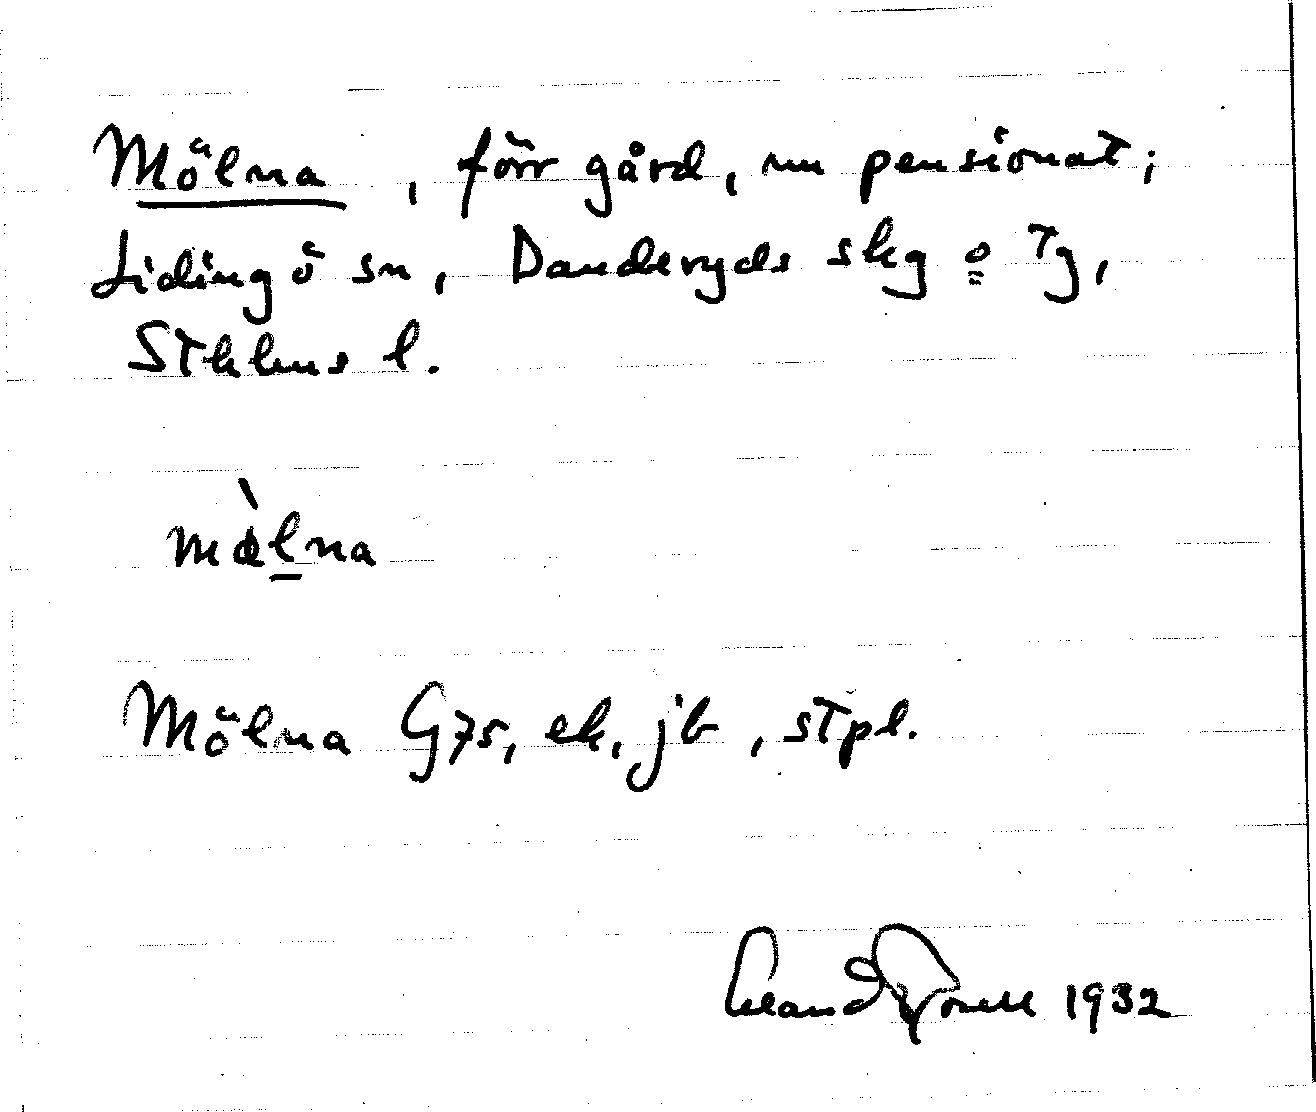 Mölna, förr gård, nu pensionat;
Lidingö sn, Danderyds skg o Tg,
Sthlms l.
Mölna G75, ek, jb, stpl.
1932